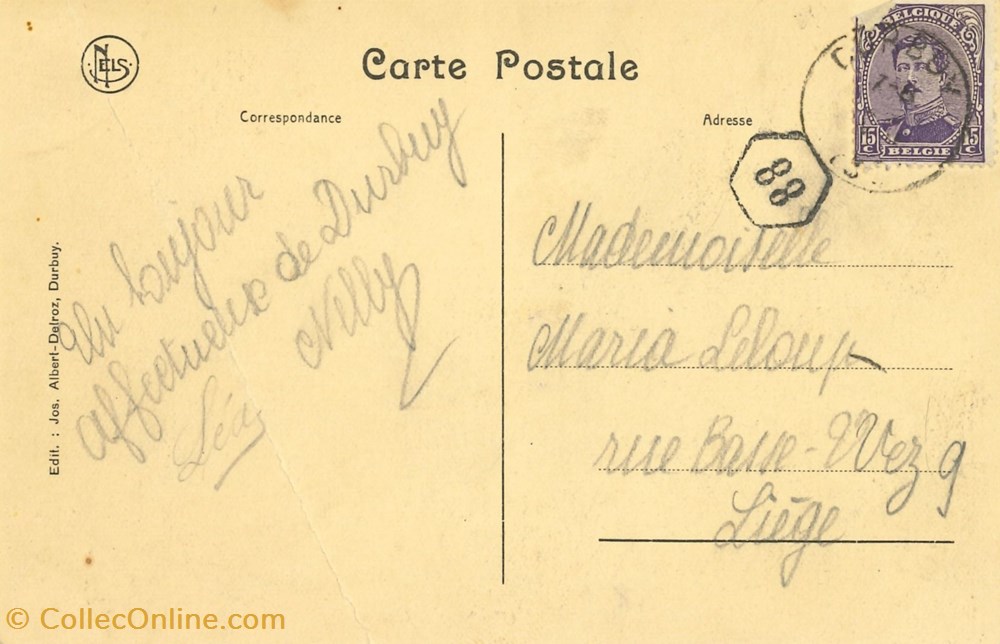 NELS
Carte Postale
Correspondance
Adresse
BELGIQUE
15 C 15 C
BELGIE
88
Un bonjour
affectueux de Durbuy
Nelly
Léa
Mademoiselle
Maria Leloup
rue Basse-Wez 9
Liège
Edit. : Jos. Albert-Delroz, Durbuy.
© CollecOnline.com